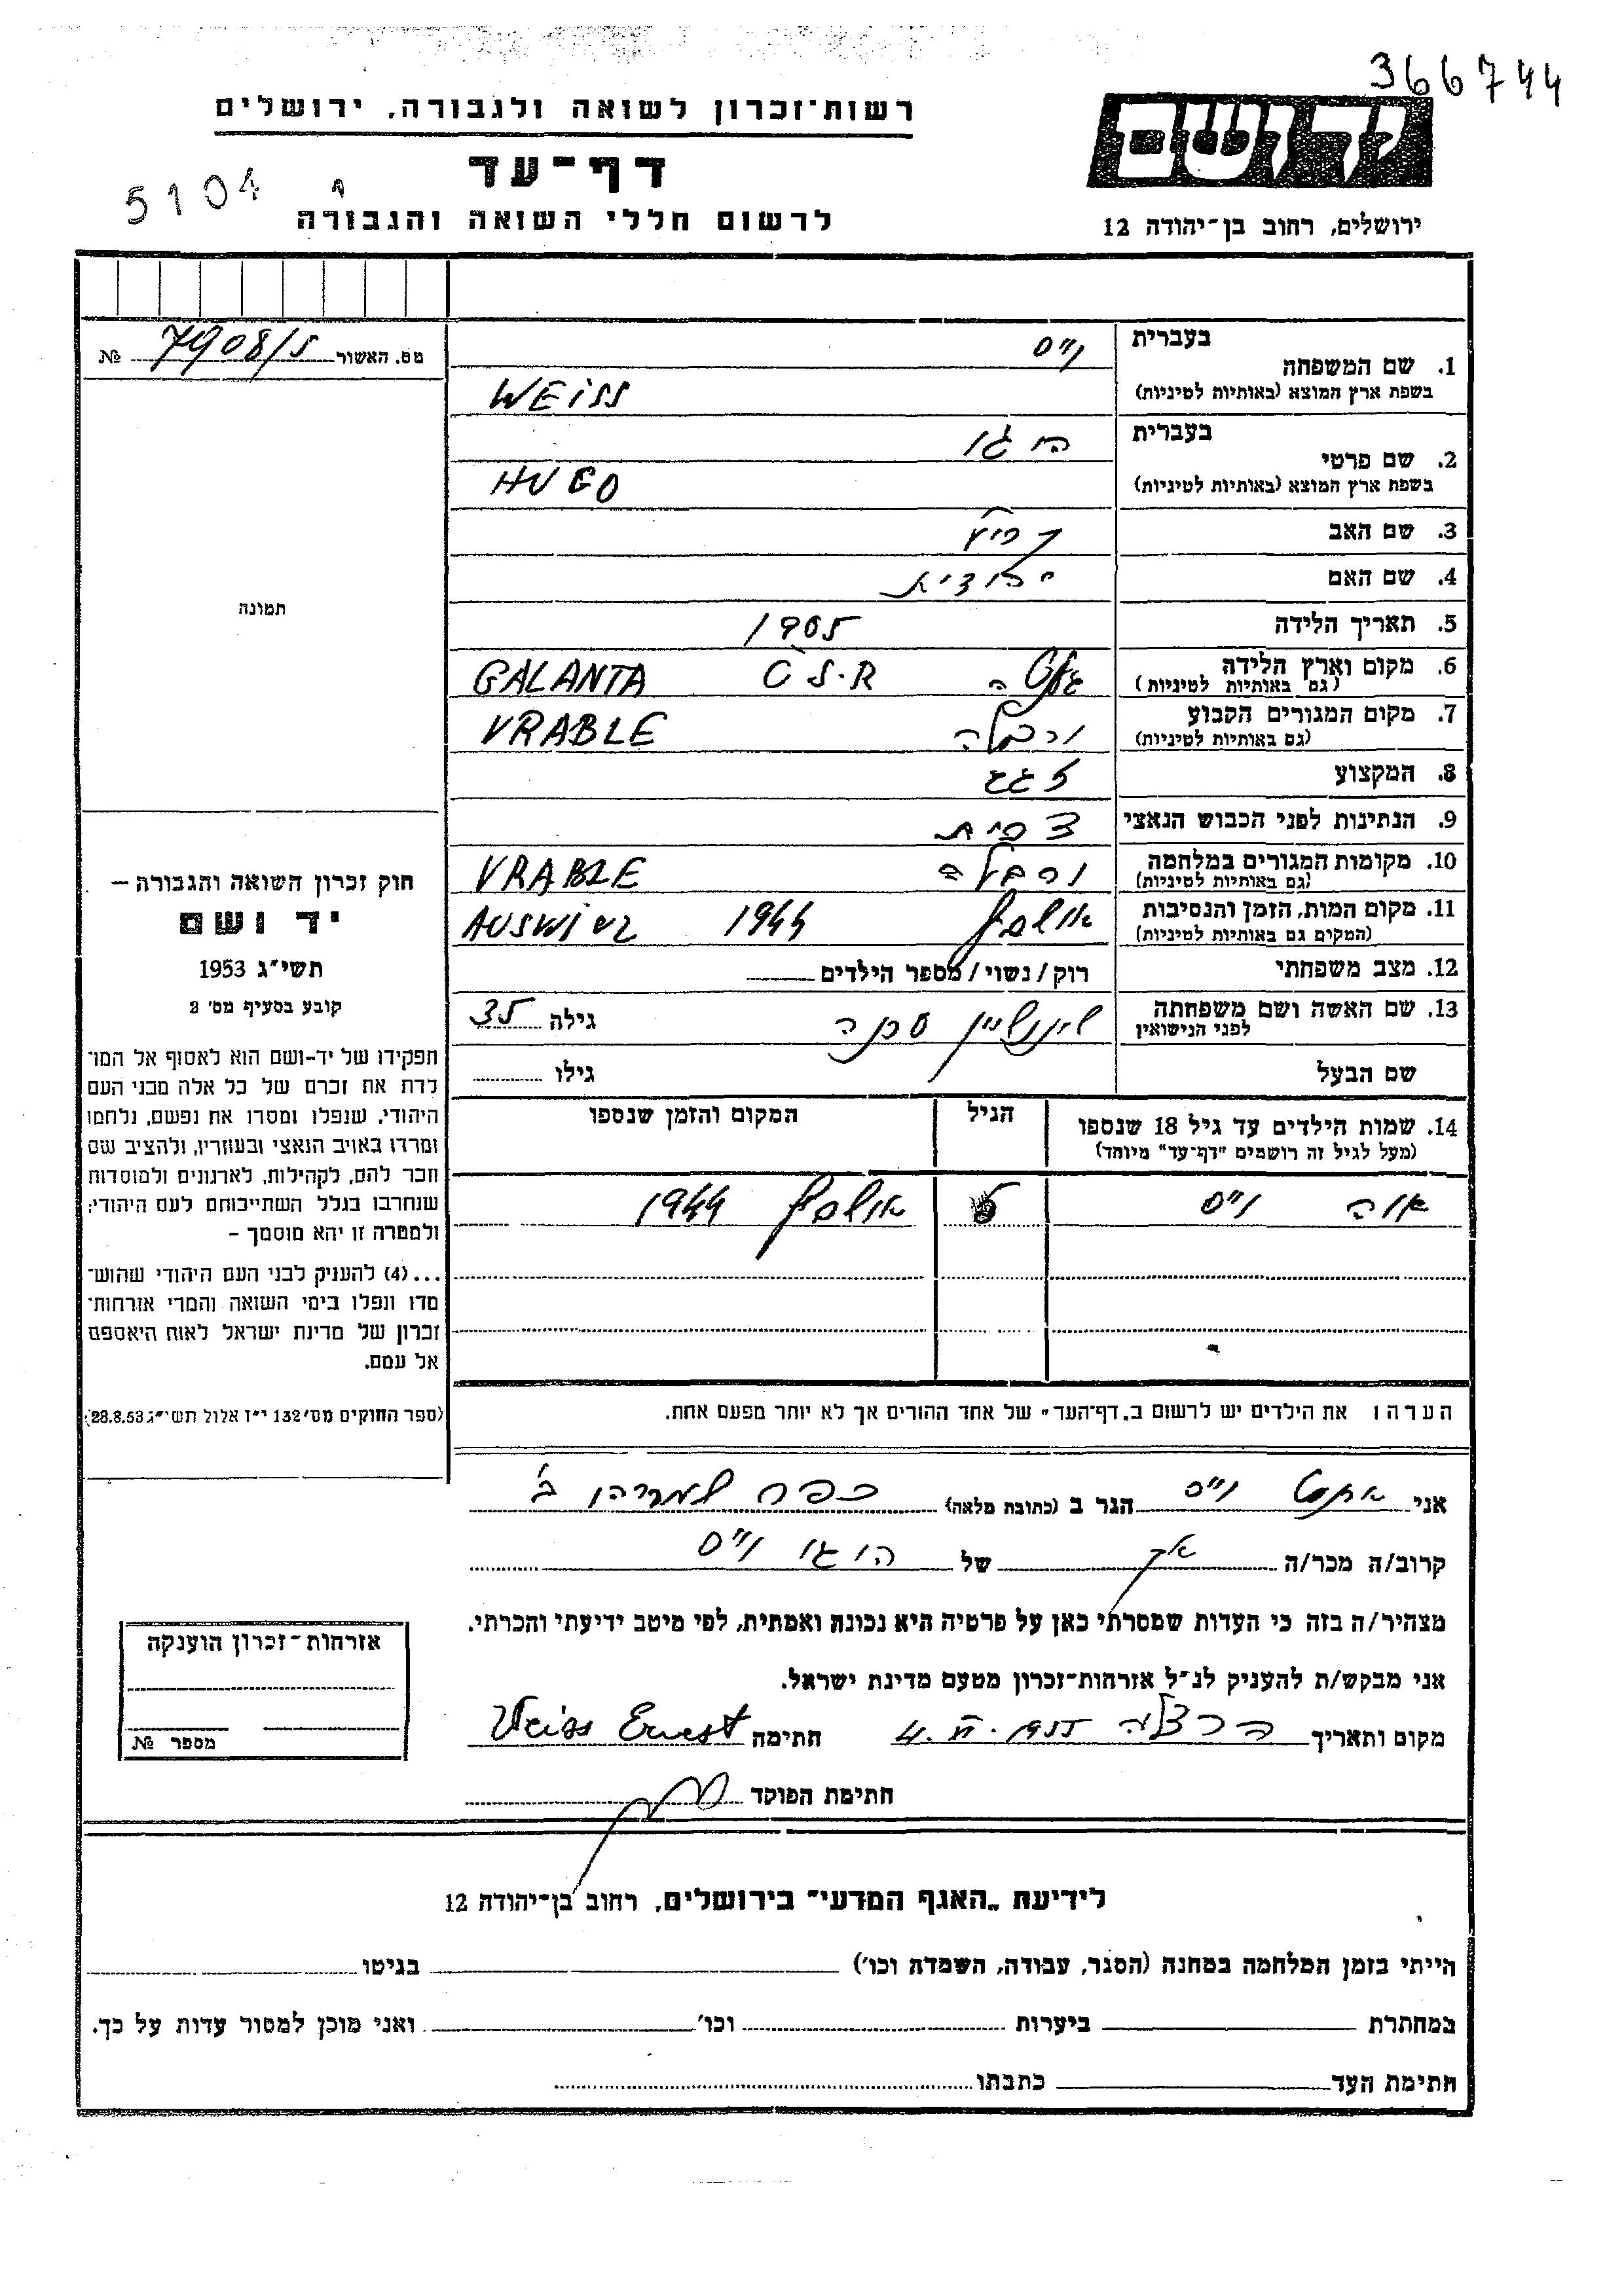 366744
רשות־זכרון לשואה ולגבורה, ירושלים
דף־עד
5104
לרשום חללי השואה והגבורה
יד ושם
ירושלים, רחוב בן־יהודה 12
מס. האשור 7908/5 №
בעברית
1. שם המשפחה וייס
בשפת ארץ המוצא (באותיות לטיניות) WEISS
בעברית
2. שם פרטי הוגו
בשפת ארץ המוצא (באותיות לטיניות) HUGO
3. שם האב
4. שם האם יהודית
5. תאריך הלידה 1905
6. מקום וארץ הלידה GALANTA C.S.R
(גם באותיות לטיניות)
7. מקום המגורים הקבוע ורבלה VRABLE
(גם באותיות לטיניות)
8. המקצוע זגג
9. הנתינות לפני הכבוש הנאצי צכית
10. מקומות המגורים במלחמה ורבלה VRABLE
(גם באותיות לטיניות)
11. מקום המות, הזמן והנסיבות אושביץ 1944 AUSWIEZ
(המקום גם באותיות לטיניות)
12. מצב משפחתי רוק / נשוי / מספר הילדים
13. שם האשה ושם משפחתה גילה 35
לפני הנישואין
שם הבעל גילו
14. שמות הילדים עד גיל 18 שנספו הגיל המקום והזמן שנספו
(מעל לגיל זה רושמים "דף־עד" מיוחד)
אוה וייס אושביץ 1944
הערה: את הילדים יש לרשום ב„דף־העד" של אחד ההורים אך לא יותר מפעם אחת.
תמונה
חוק זכרון השואה והגבורה —
יד ושם
תשי"ג 1953
קובע בסעיף מס' 2
תפקידו של יד-ושם הוא לאסוף אל המו־
לדת את זכרם של כל אלה מבני העם
היהודי, שנפלו ומסרו את נפשם, נלחמו
ומרדו באויב הנאצי ובעוזריו, ולהציב שם
וזכר להם, לקהילות, לארגונים ולמוסדות
שנחרבו בגלל השתייכותם לעם היהודי;
ולמטרה זו יהא מוסמך –
...(4) להעניק לבני העם היהודי שהוש־
מדו ונפלו בימי השואה והמרי אזרחות־
זכרון של מדינת ישראל לאות היאספם
אל עמם.
(ספר החוקים מס' 132 י"ז אלול תשי"ג 28.8.53)
אני ארנסט וייס הגר ב (כתובת מלאה) כפר שמריהו ב'
קרוב/ה מכר/ה אח של הוגו וייס
מצהיר/ה בזה כי העדות שמסרתי כאן על פרטיה היא נכונה ואמתית, לפי מיטב ידיעתי והכרתי.
אני מבקש/ת להעניק לנ"ל אזרחות־זכרון מטעם מדינת ישראל.
מקום ותאריך הרצליה 1955 חתימה Weiss Ernest
חתימת הפוקד
אזרחות־זכרון הוענקה
מספר №
לידיעת „האגף המדעי" בירושלים, רחוב בן־יהודה 12
הייתי בזמן המלחמה במחנה (הסגר, עבודה, השמדת וכו') בגיטו
במחתרת ביערות וכו' ואני מוכן למסור עדות על כך.
חתימת העד כתבתו